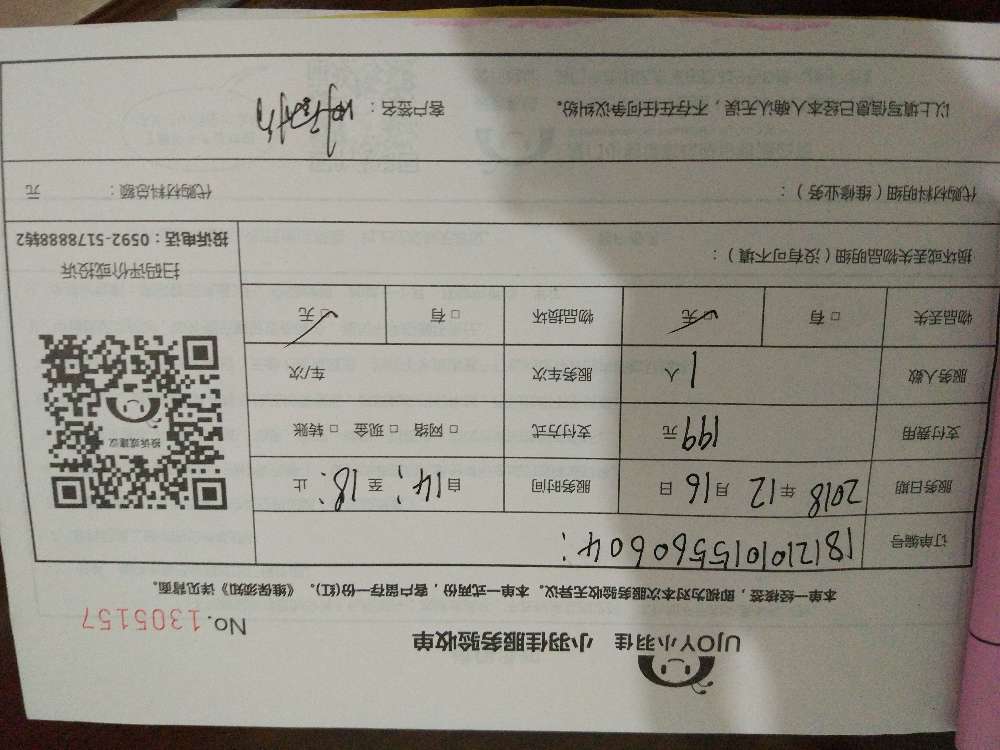 UJOY小羽佳 小羽佳服务验收单
No.1305157
本单一经接签，即视为对本次服务验收无异议。本单一式两份，客户留存一份(红)。《维保须知》详见背面。
订单编号 181210101556060604:
服务日期 2018 年 12 月 16 日 服务时间 自 14: 至 18: 止
支付费用 199 元 支付方式 □ 网络 □ 现金 □ 转账
服务人数 1 人 服务车次 车/次
物品丢失 □ 有 □ 无 物品损坏 □ 有 □ 无
投诉或建议
扫码评价或投诉
投诉电话：0592-5178888转2
损坏或丢失物品明细（没有可不填）：
代购材料明细（维修业务）： 代购材料总额： 元
以上填写信息已经本人确认无误，不存在任何争议纠纷。 客户签名：